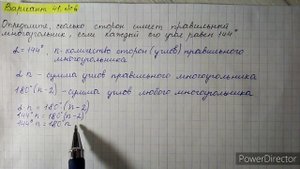 Вариант 41, №6
Определите, сколько сторон имеет правильный
многоугольник, если каждый его угол равен 144°
α = 144° n - количество сторон (углов) правильного
многоугольника
α n - сумма углов правильного многоугольника
180°(n-2) - сумма углов любого многоугольника
α n = 180°(n-2)
144° n = 180°(n-2)
144° n = 180° n
PowerDirector